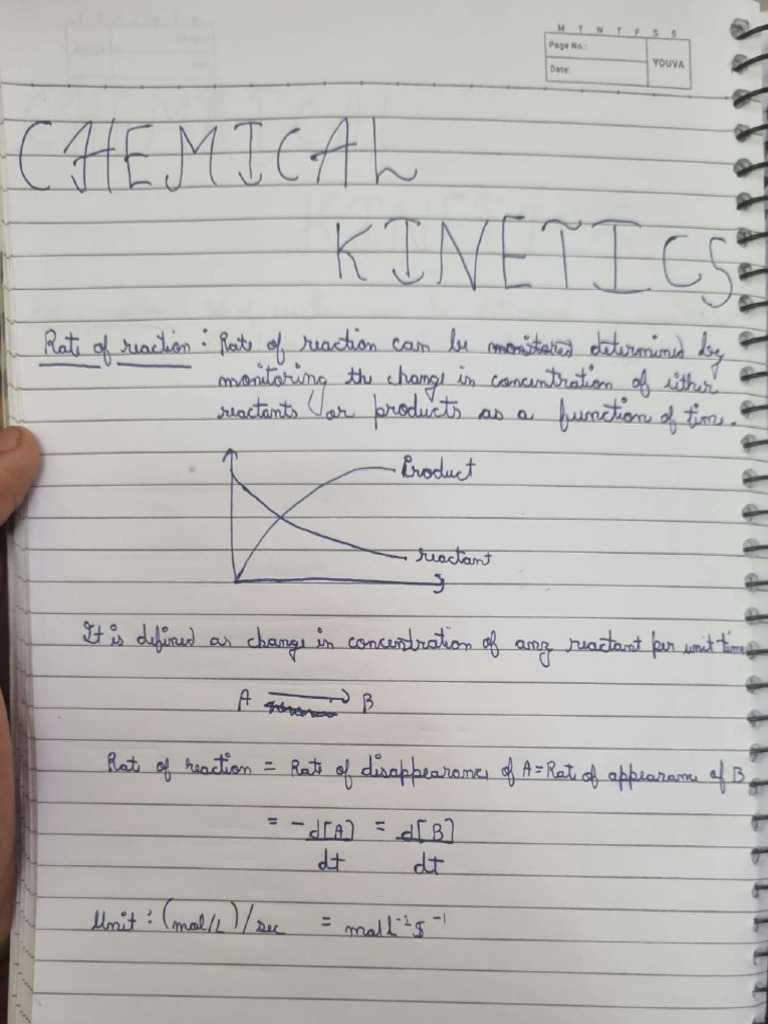 M T W T F S S
Page No.:
Date:
YOUVA
CHEMICAL
KINETICS
Rate of reaction : Rate of reaction can be determined by
monitoring the change in concentration of either
reactants or products as a function of time.
Product
reactant
It is defined as change in concentration of any reactant per unit time
A → B
Rate of reaction = Rate of disappearance of A = Rate of appearance of B
= -d[A]/dt = d[B]/dt
Unit : (mol/L)/sec = mol L⁻¹ S⁻¹